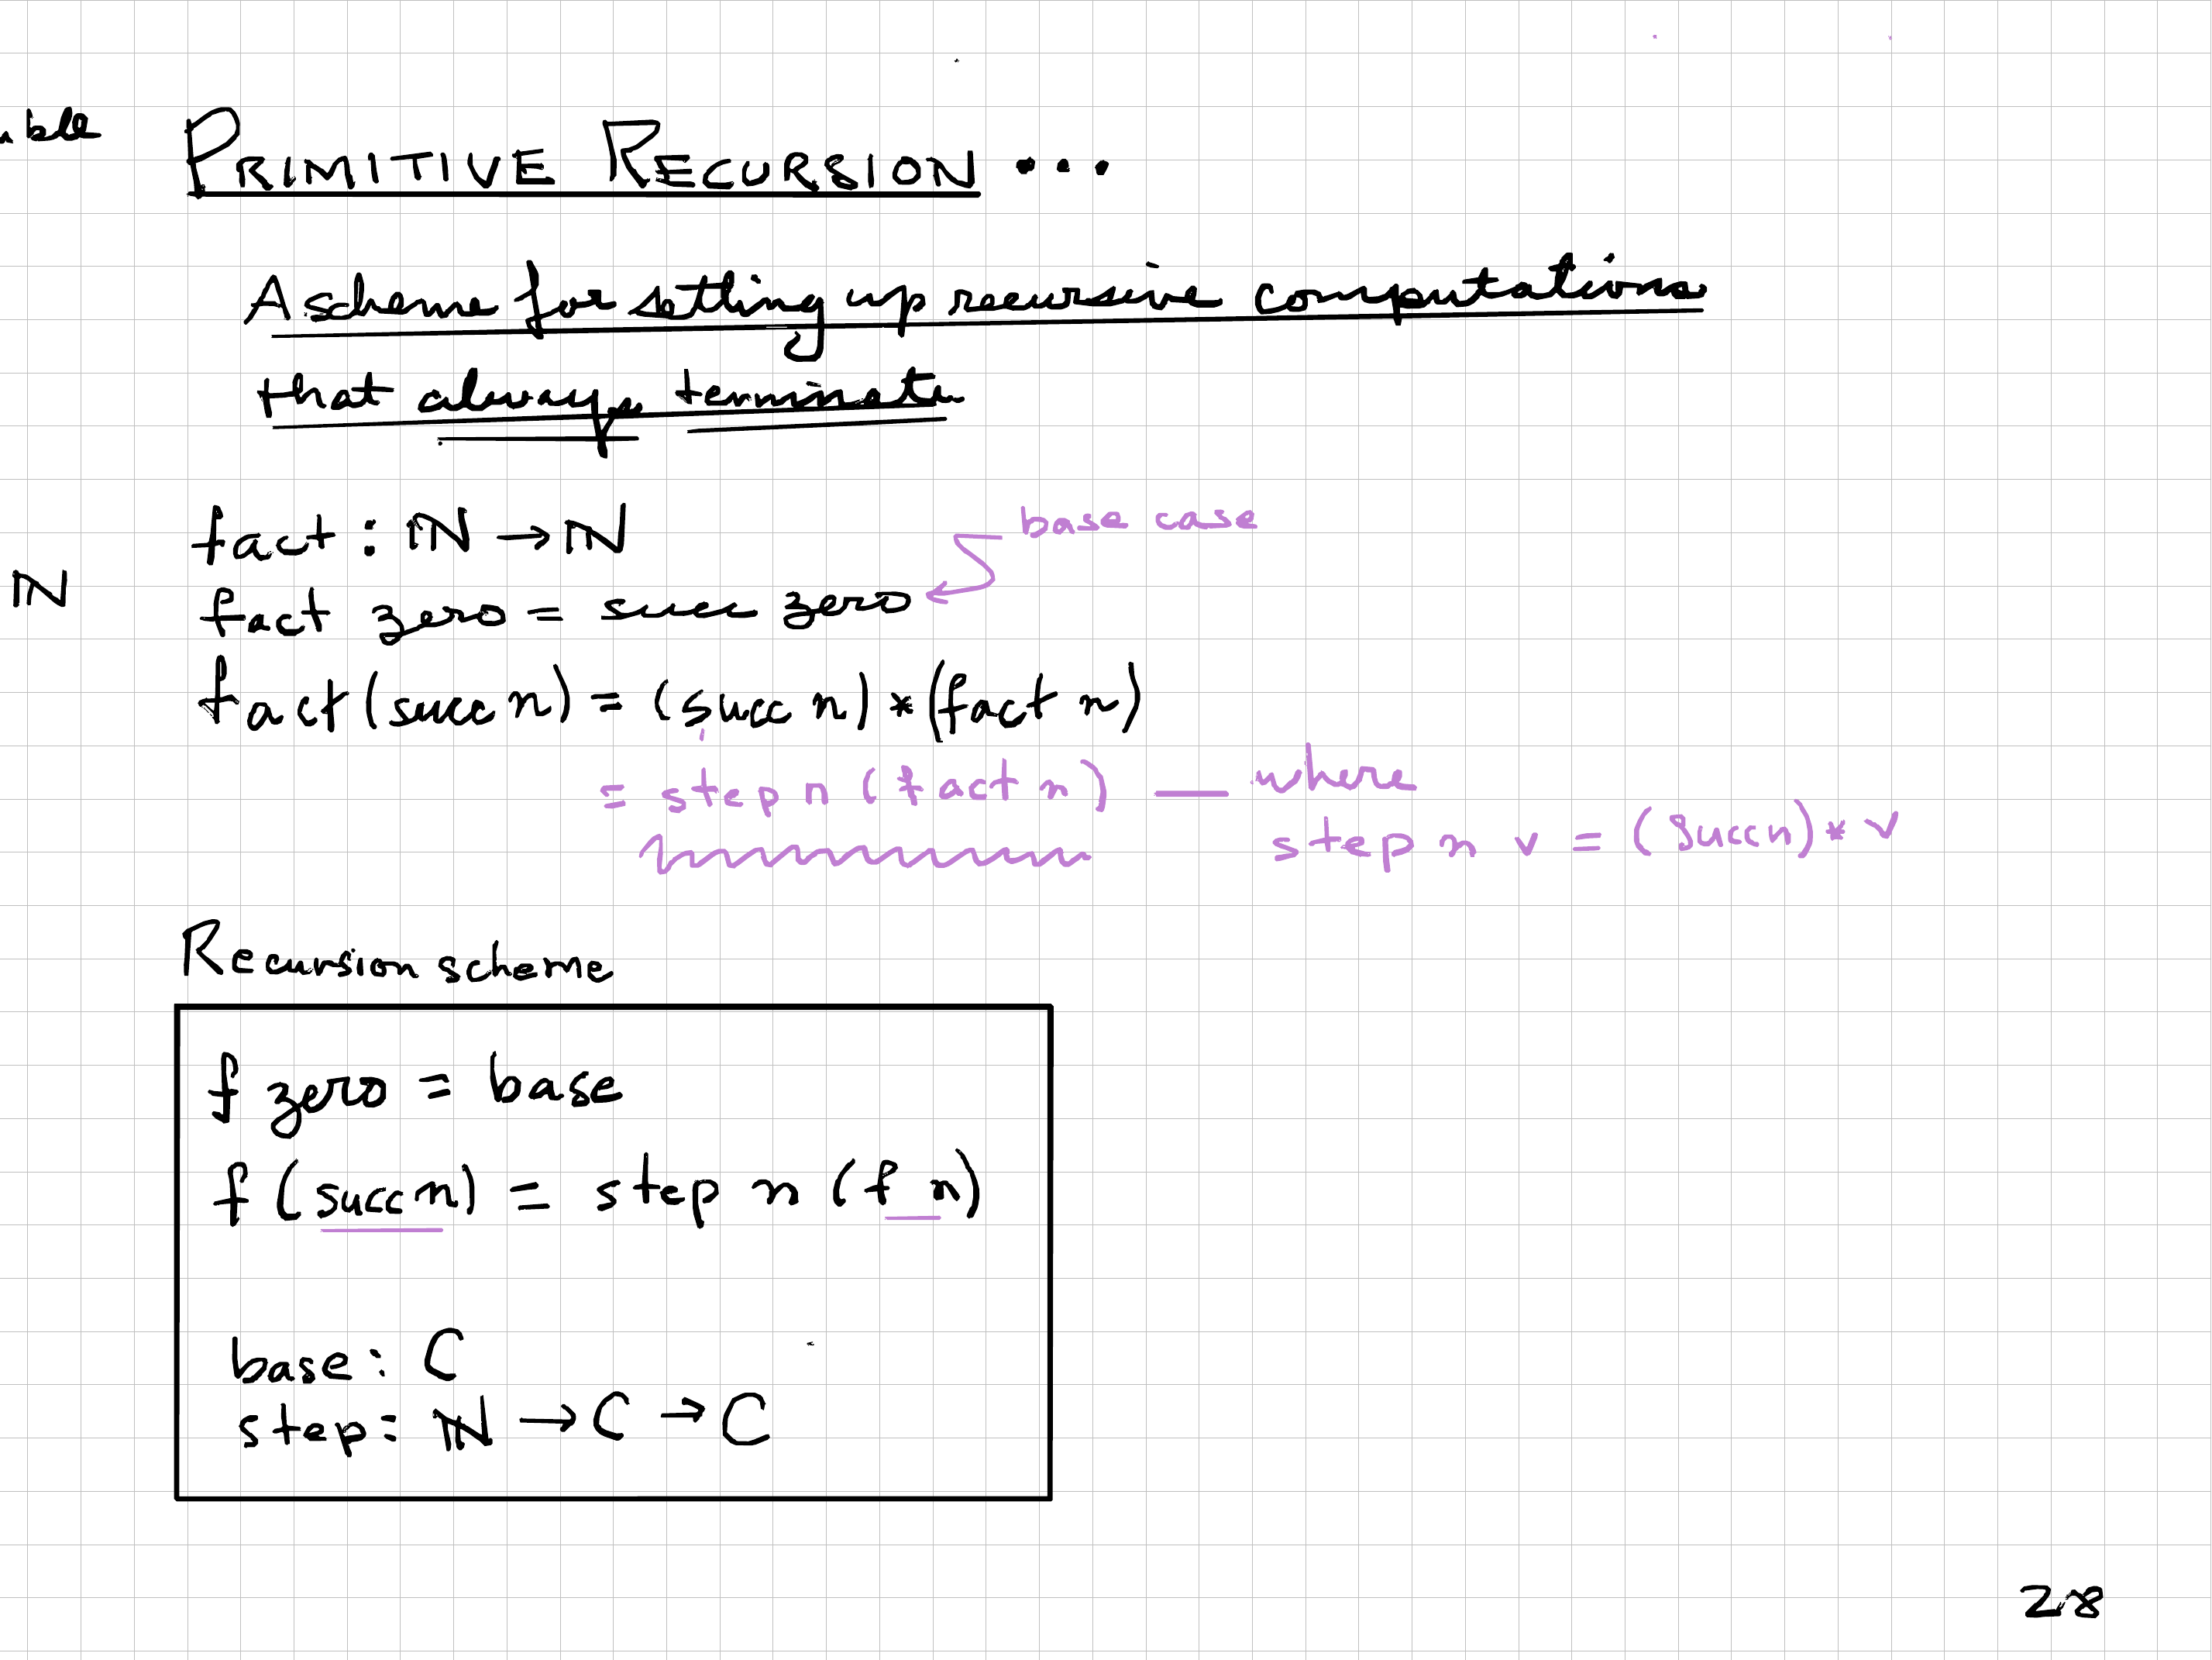 PRIMITIVE RECURSION ...
A scheme for setting up recursive computations
that always terminate
base case
fact : ℕ → ℕ
ℕ
fact zero = succ zero
fact (succ n) = (succ n) * (fact n)
= step n (fact n) — where
step n v = (succ n) * v
Recursion scheme
f zero = base
f (succ n) = step n (f n)
base : C
step : ℕ → C → C
28